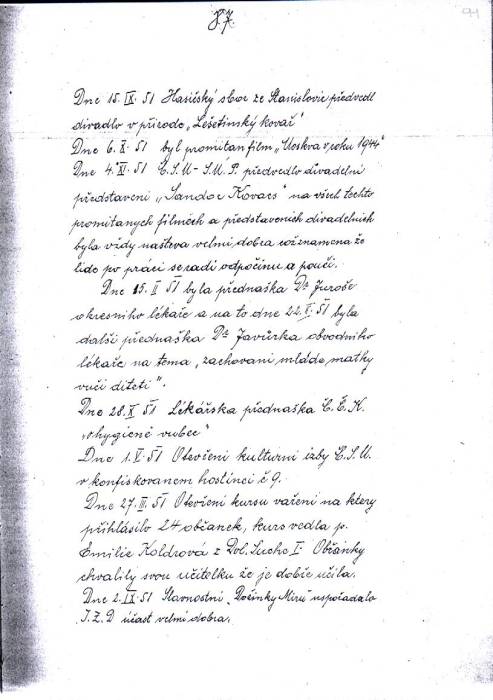 87.
94
Dne 15. IX. 51 Hasičský sbor ze Stanislovic předvedl
divadlo v přírodě „Lešetínský kovář"
Dne 6. X. 51 byl promitan film „Moskva v roku 1944"
Dne 4. XI. 51 Č.S.M - S.M.P. předvedlo divadelní
představení „Sandor Kovacs" na všech techto
promitanych filmech a představenich divadelnich
byla vždy našteva velmi dobra což znamena že
lide po práci se radi odpočinu a pouči.
Dne 15. II 51 byla přednaška Dr Juroše
okresniho lékaře a na to dne 22. V. 51 byla
další přednaška Dr Javůrka obvodniho
lékaře na tema „zachovani mlade matky
vuči diteti".
Dne 28. X 51 Lékářska přednaška Č.Č.K.
„o hygieně vubec"
Dne 1. V. 51 Otevřeni kulturni izby Č.S.M.
v konfiskovanem hostinci č 9.
Dne 27. III. 51 Otevřeni kursu vařeni na ktery
přihlásilo 24 občanek, kurs vedla p.
Emilie Koldrová z Dol. Lucho I. Občánky
chvalily svou učitelku že je dobře učila.
Dne 2. IX 51 Slavnostni „Dožinky Miru" uspořadalo
J.Z.D účast velmi dobra.